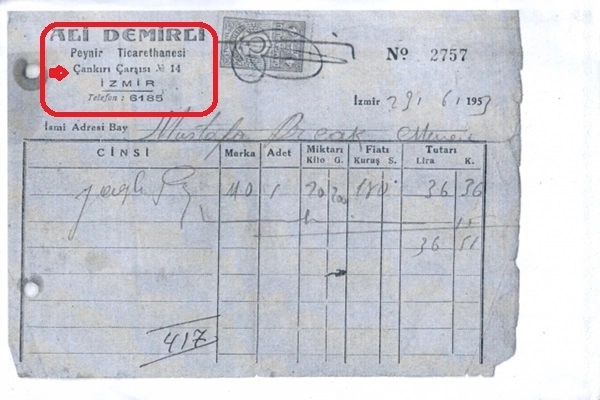 ALİ DEMİRLİ
Peynir Ticarethanesi
Çankırı Çarşısı № 14
İZMİR
Telefon : 6185
Nº 2757
İzmir 29/6/1953
İsmi Adresi Bay Mustafa
CİNSİ Marka Adet Miktarı Fiatı Tutarı
Kilo G. Kuruş S. Lira K.
40 1 20 200 180 36 36
15
36 51
417